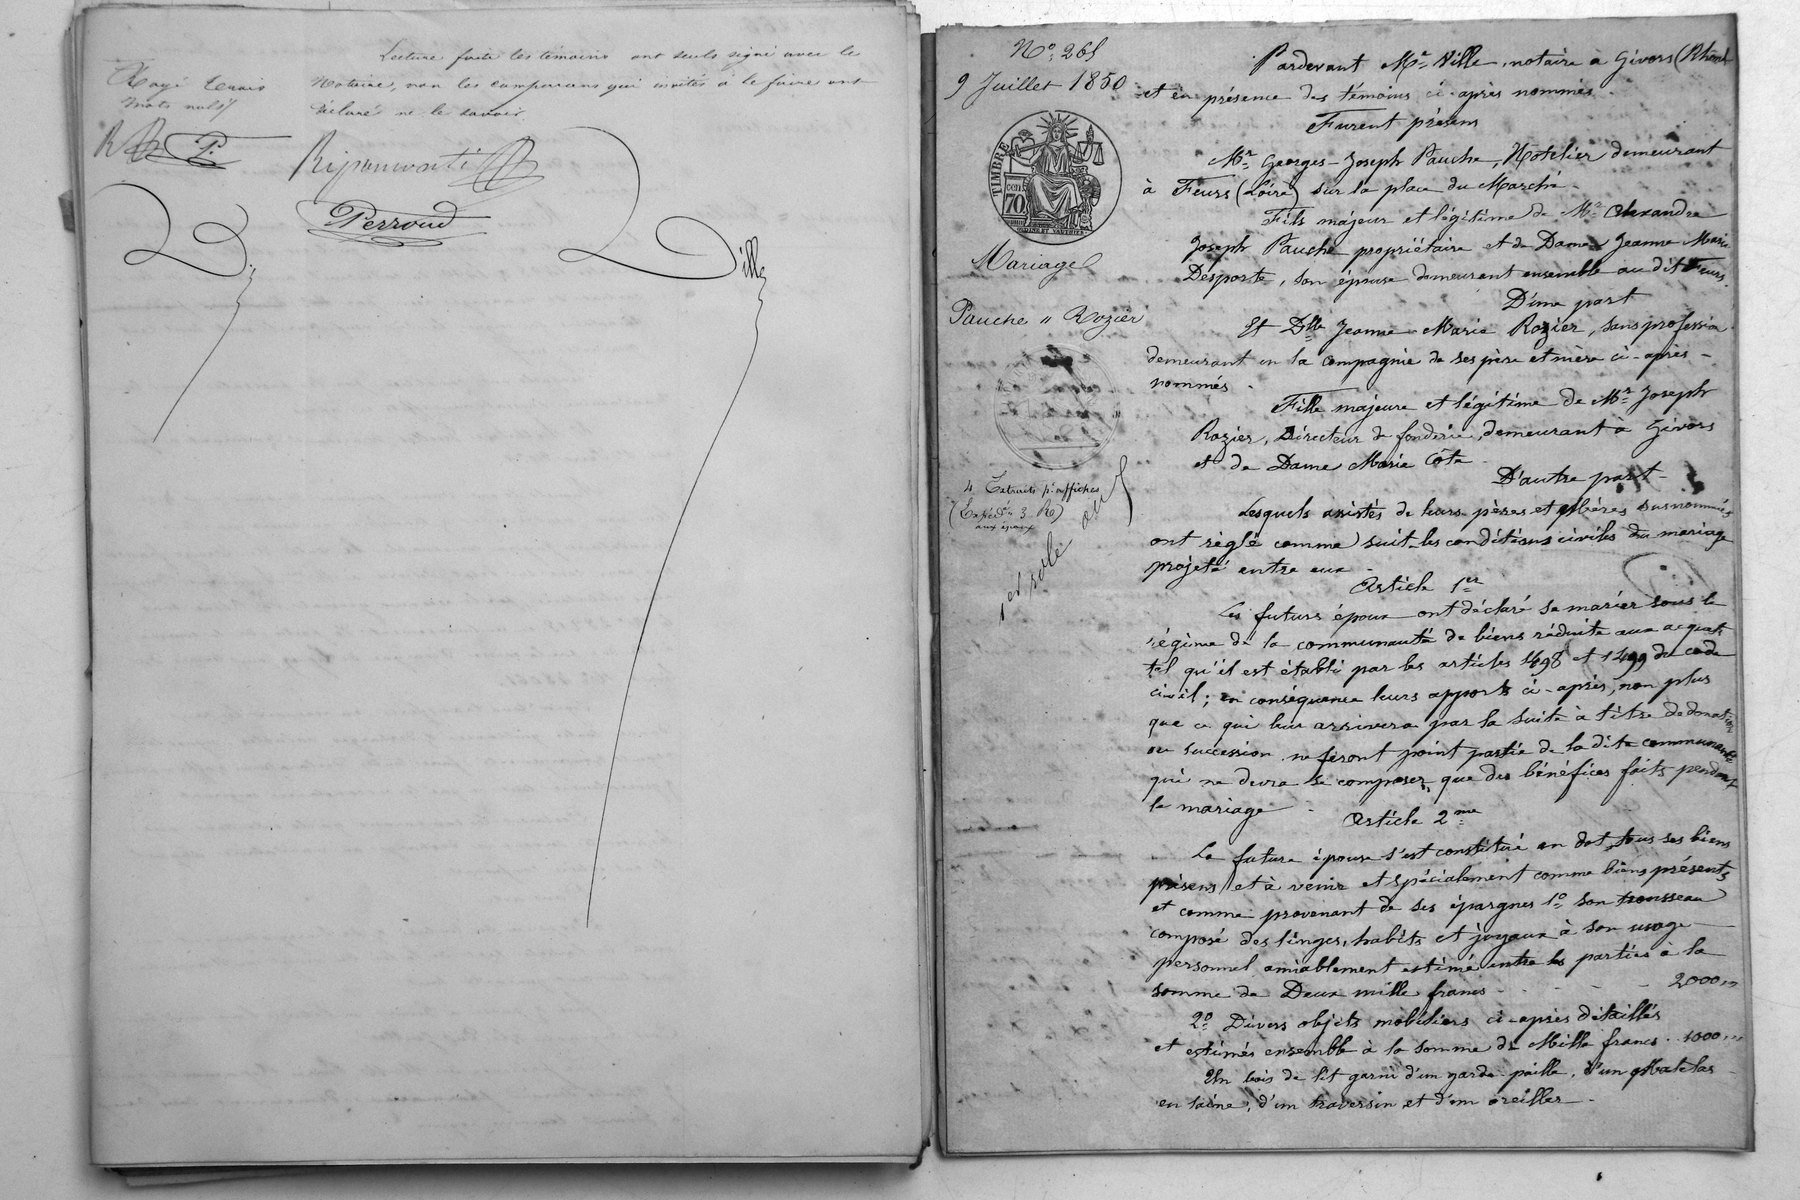 Lecture faite les témoins ont seuls signé avec le
Notaire, non les comparans qui invités à le faire ont
déclaré ne le savoir.
Rayé trois
mots nuls
R P.
Riponmonti
Perroud
Ville
No. 265
9 Juillet 1850
TIMBRE
cen.
70
Mariage
Pauche " Rozier
4 Extraits pr. affiches
(Expédon 3 R)
aux époux
1er role
Pardevant Me Ville, notaire à Givors (Rhône
et en présence des témoins ci-après nommés
Furent présens
Mr. Georges-Joseph Pauche, Hotelier demeurant
à Feurs (Loire) sur la place du Marché.
Fils majeur et légitime de Mr. Alexandre
Joseph Pauche propriétaire et de Dame Jeanne Marie
Desporte, son épouse demeurant ensemble au dit Feurs.
D'une part
Et Dlle Jeanne Marie Rozier, sans profession
demeurant en la compagnie de ses père et mère ci-après
nommés.
Fille majeure et légitime de Mr. Joseph
Rozier, Directeur de fonderie, demeurant à Givors
et de Dame Marie Côte
D'autre part
Lesquels assistés de leurs pères et Mères susnommés
ont règlé comme suit les conditions civiles du mariage
projeté entre eux
Article 1er
Les futurs époux ont déclaré se marier sous le
régime de la communauté de biens réduite aux acquets
tel qu'il est établi par les articles 1498 et 1499 du code
civil; en conséquence leurs apports ci-après, non plus
que ce qui leur arrivera par la suite à titre de donation
ou succession ne feront point partie de la dite communauté
qui ne devra se composer que des bénéfices faits pendant
le mariage
Article 2me
La future épouse s'est constitué en dot tous ses biens
présens et à venir et spécialement comme biens présents
et comme provenant de ses épargnes 1o. son trousseau
composé des linges, habits et joyaux à son usage
personnel amiablement estimé entre les parties à la
somme de Deux mille francs 2000,,,
2o. Divers objets mobiliers ci-après détaillés
et estimés ensemble à la somme de Mille francs 1000,,,
Un bois de lit garni d'un garde-paille, d'un Matelas
en laine, d'un traversin et d'un oreiller.